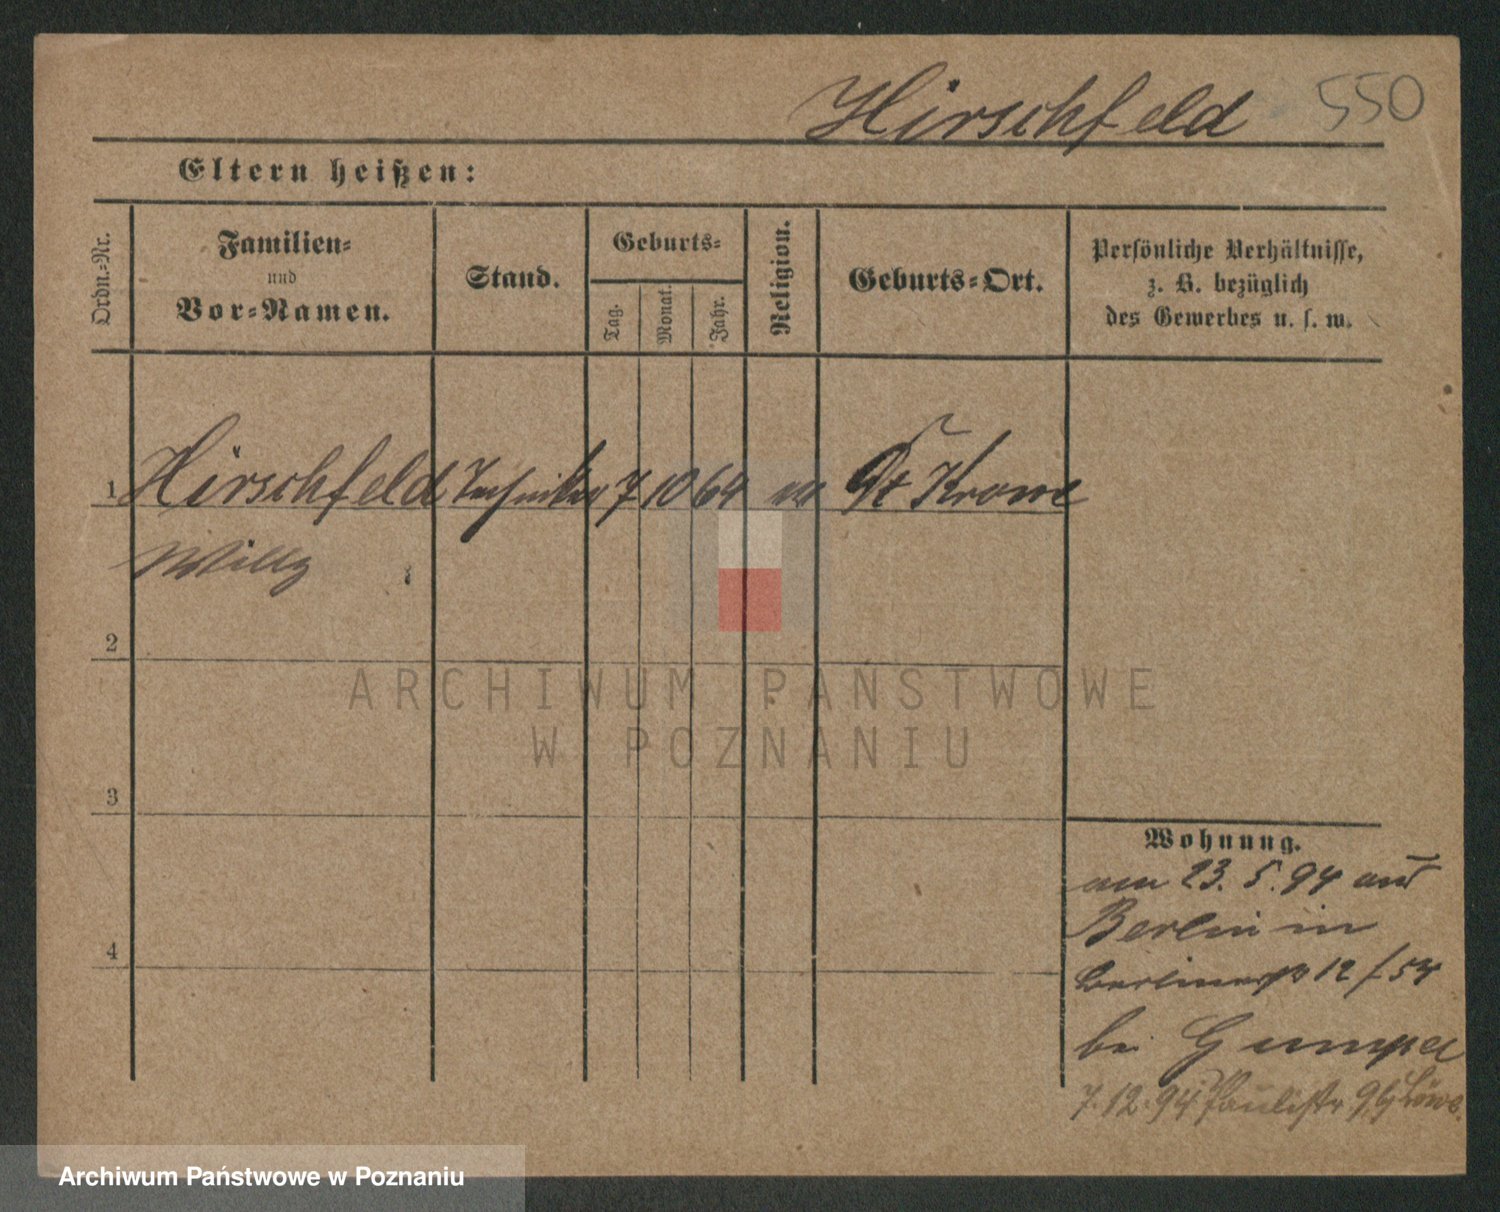 Hirschfeld 550
Eltern heißen:
Ordn.=Nr.
Familien=
und
Vor=Namen.
Stand.
Geburts=
Tag.
Monat.
Jahr.
Religion.
Geburts=Ort.
Persönliche Verhältnisse,
z. B. bezüglich
des Gewerbes u. s. w.
1 Hirschfeld Techniker 7 10 64 Dt Krone
Willy
2
3
4
ARCHIWUM PAŃSTWOWE
W POZNANIU
Wohnung.
am 23. 5. 94 aus
Berlin in
Berlinerstr 12 / 54
bei Gumpel
7.12.94 Paulistr 9
Archiwum Państwowe w Poznaniu